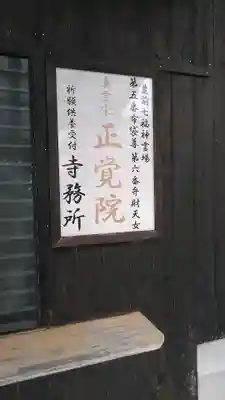 豊前七福神霊場
第五番布袋尊第六番弁財天女
真言宗
正覚院
祈願供養受付
寺務所